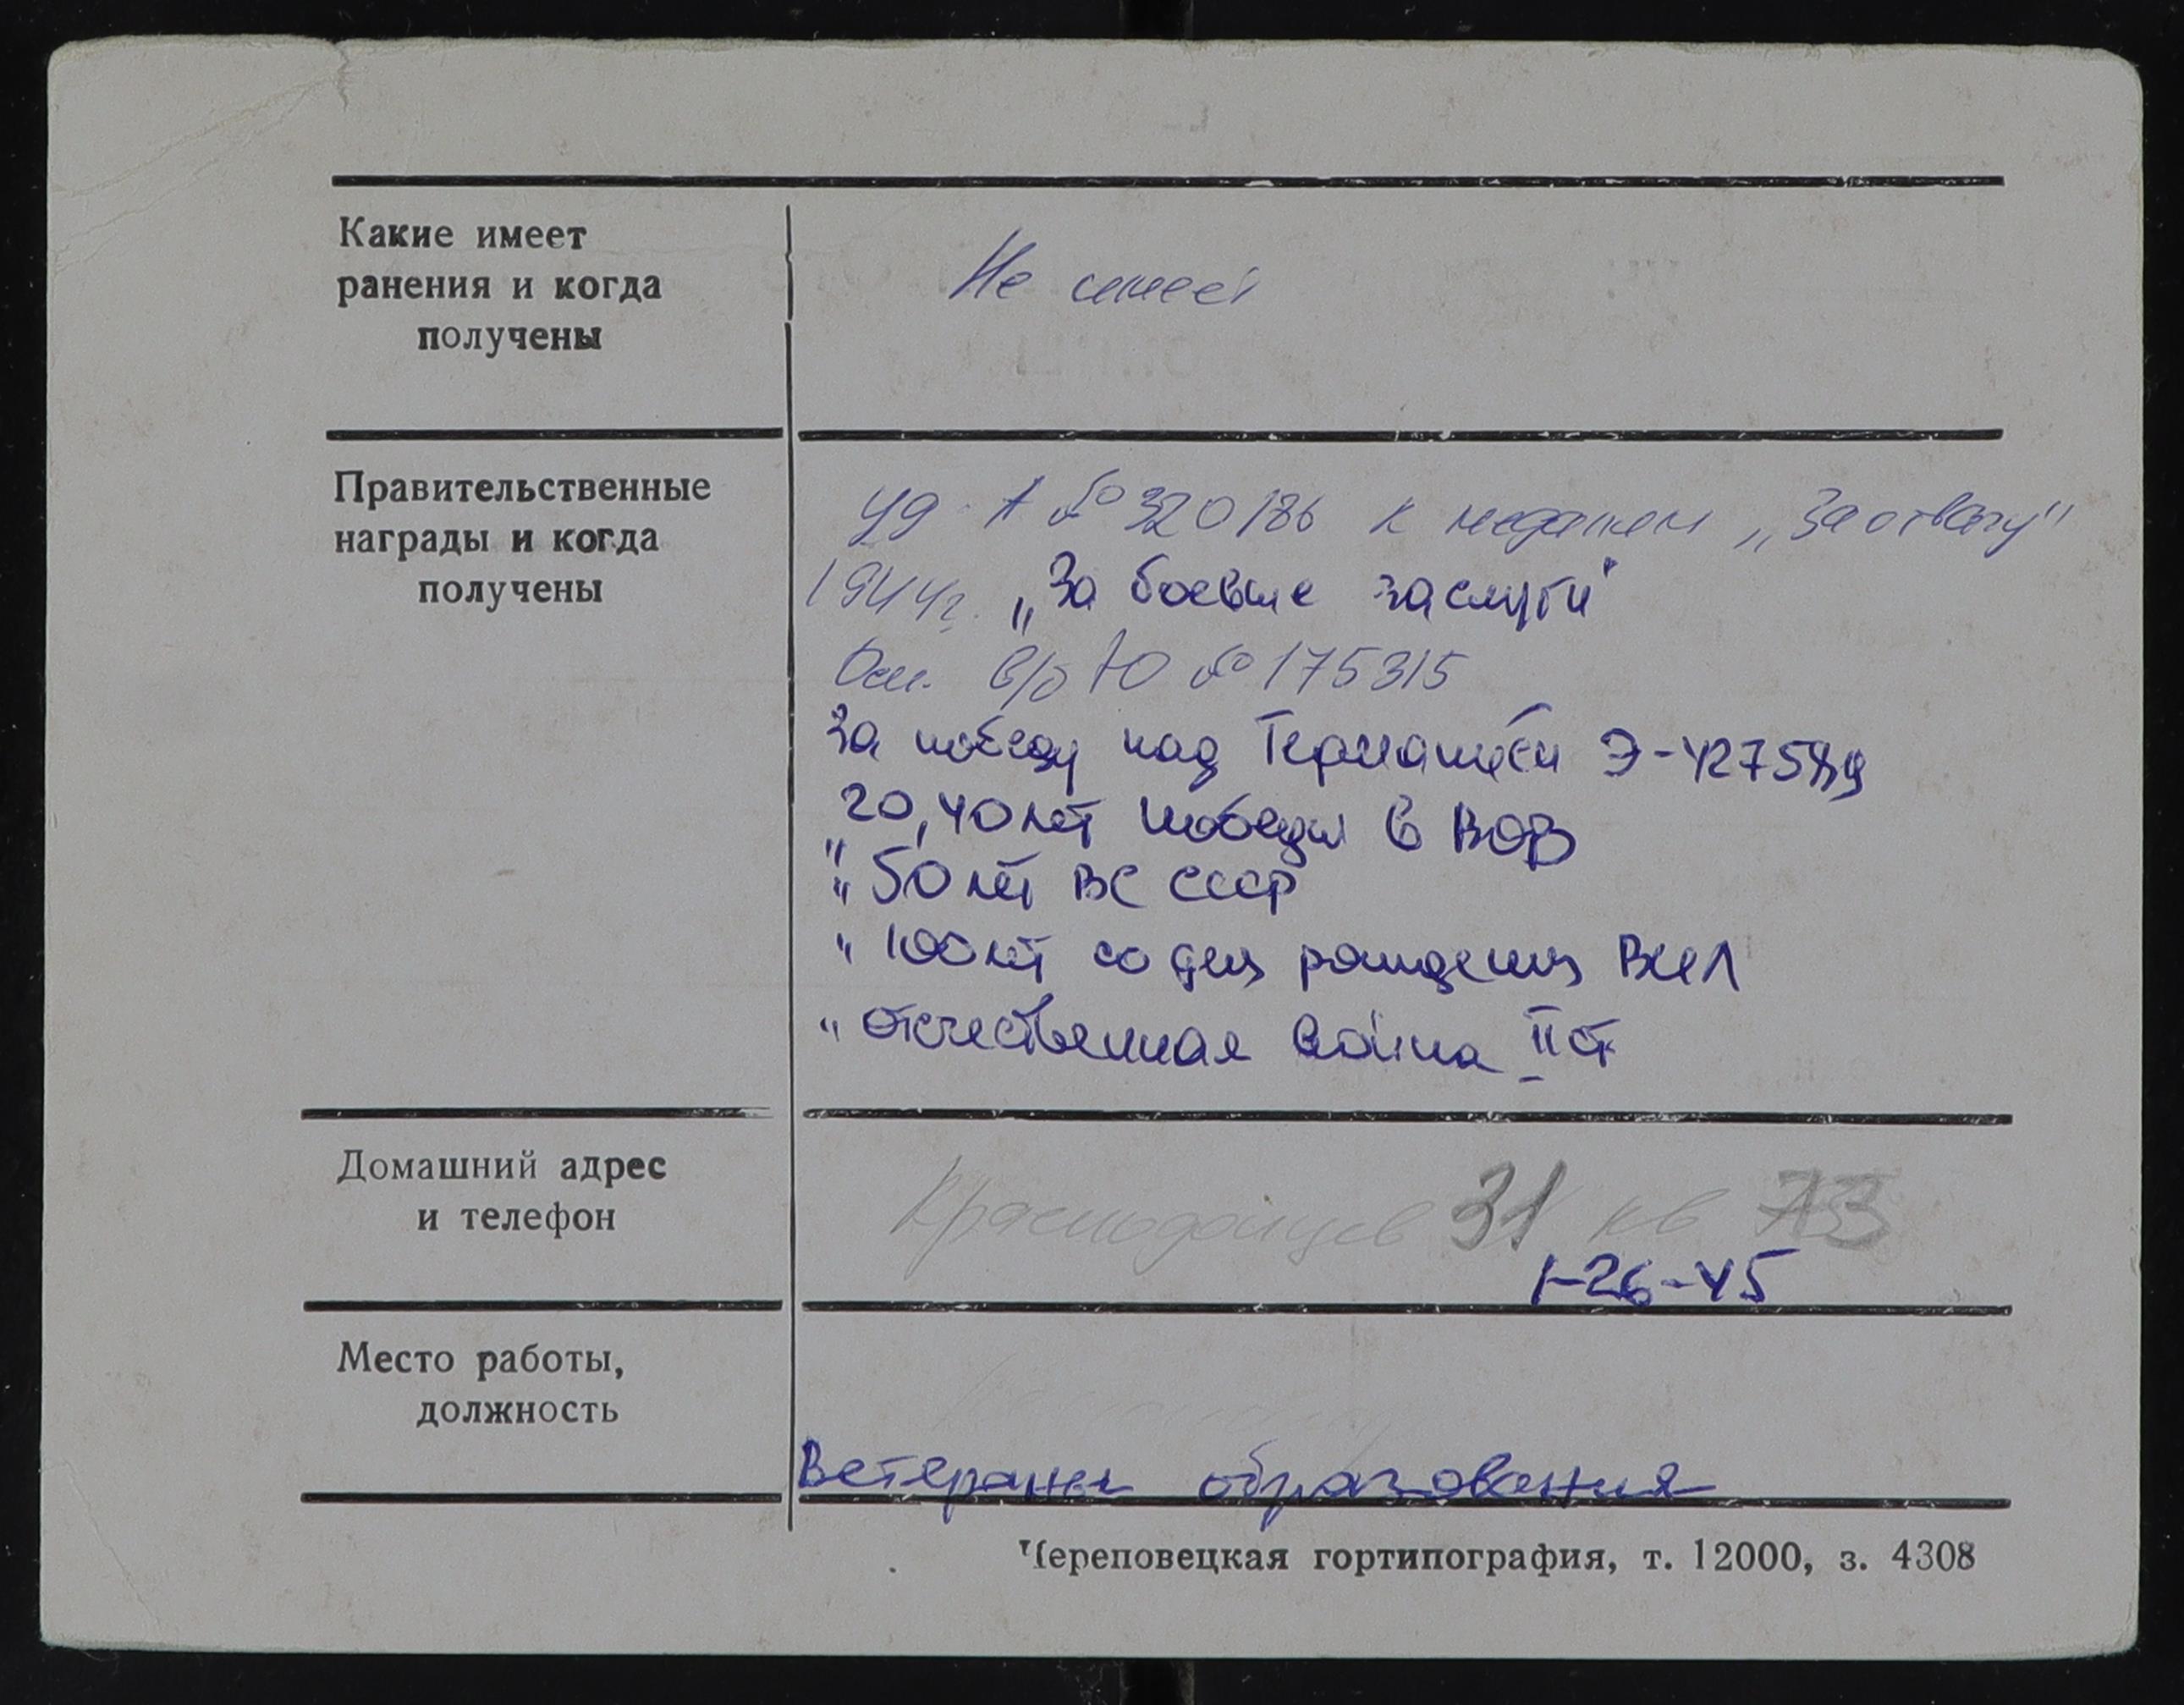 Какие имеет
ранения и когда
получены
Не имеет
Правительственные
награды и когда
получены
Уд. А № 320186 к медалям „За отвагу"
1944г. „За боевые заслуги"
в/б Ю № 175315
За победу над Германией Э-
„20, 40 лет Победы в ВОВ
„50 лет ВС СССР
„100 лет со дня рождения ВИЛ
„Отечественная война II ст
Домашний адрес
и телефон
Краснодонцев 31 кв 73
1-26-45
Место работы,
должность
Ветераны образования
Череповецкая гортипография, т. 12000, з. 4308